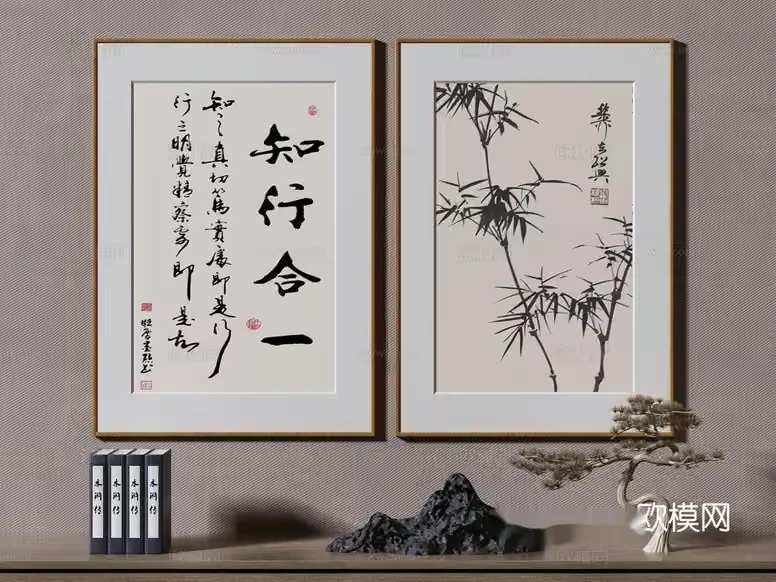 知行合一
知之真切篤實處即是行
行之明覺精察處即是知
水浒传
水浒传
水浒传
水浒传
欢模网